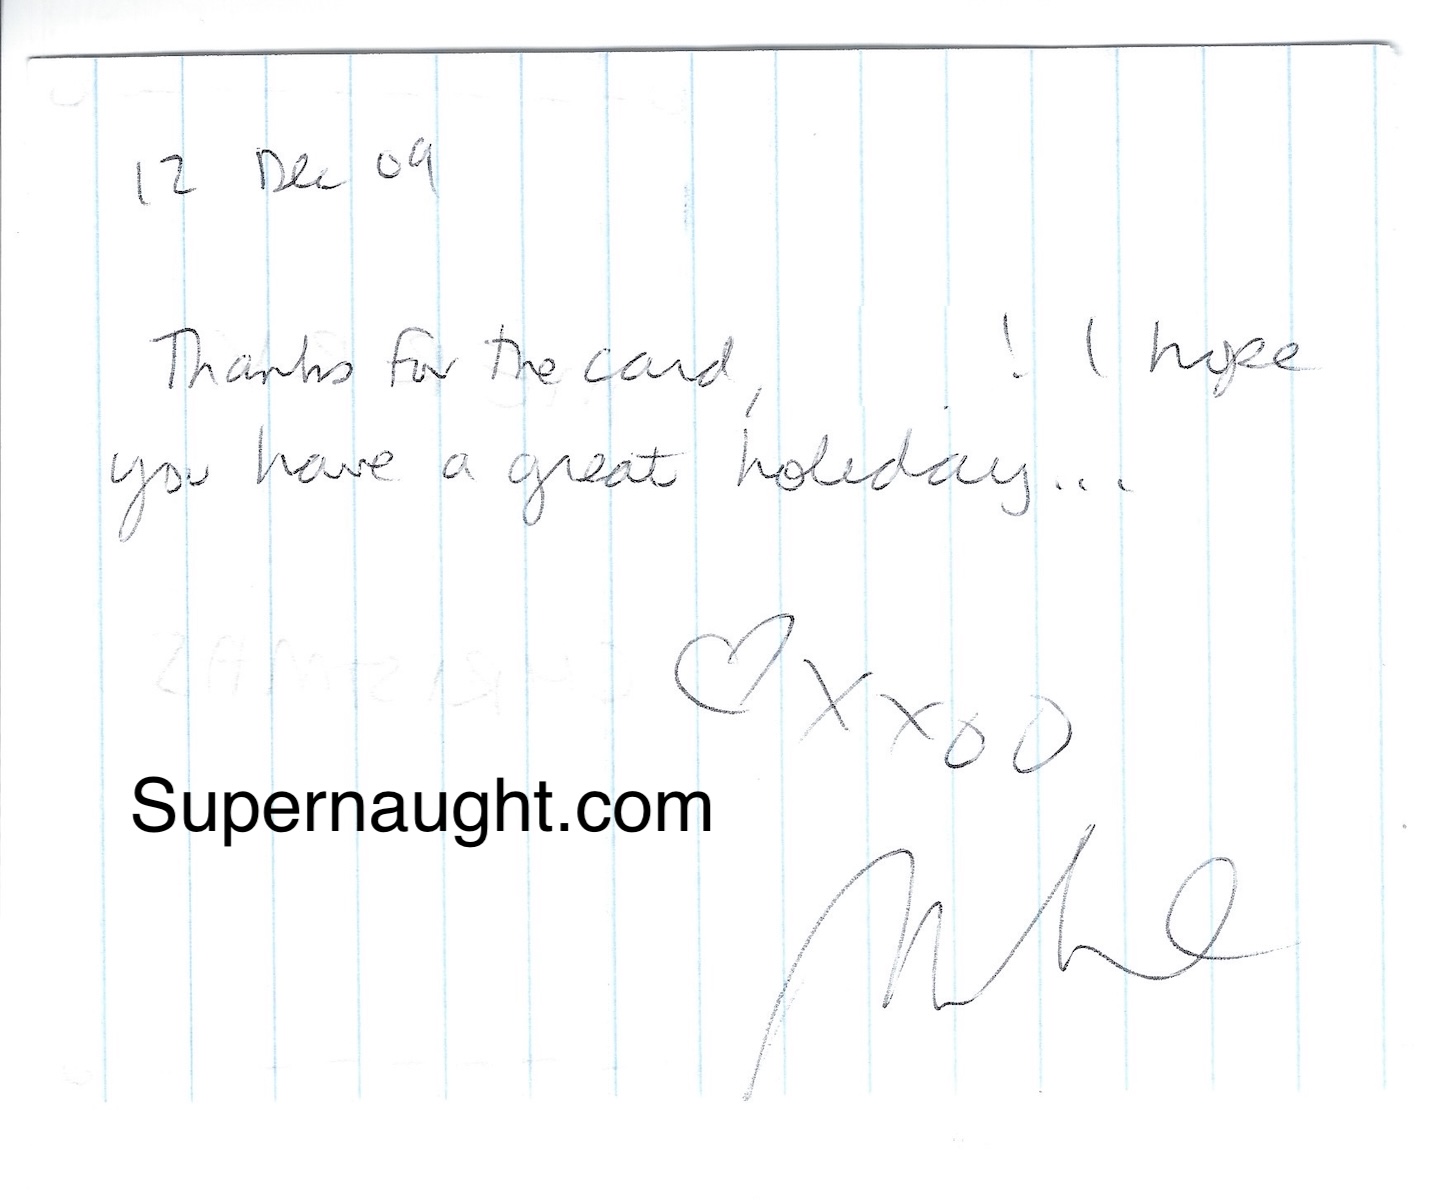 12 Dec 09
Thanks for the card, ! I hope
you have a great holiday...
♡XXOO
Supernaught.com